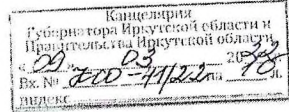 Канцелярия
Губернатора Иркутской области и
Правительства Иркутской области
« 09 » 03 20 22
Вх. № 700-41/22 на 10 л.
индекс